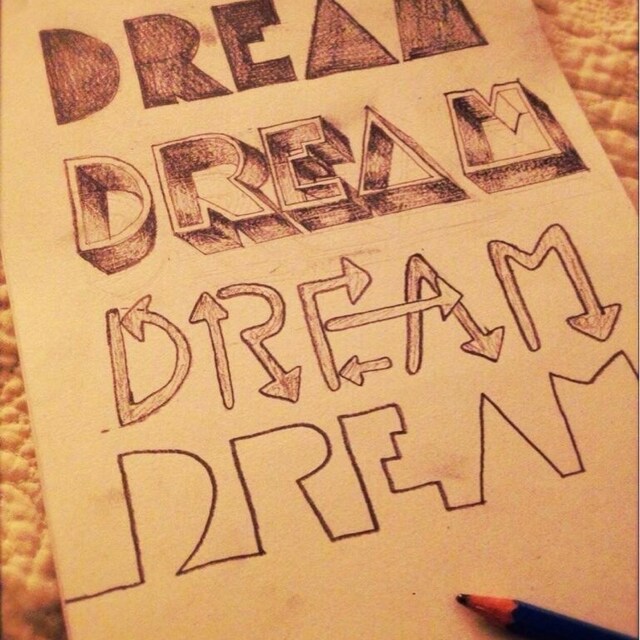 DREAM
DREAM
DREAM
DREAM